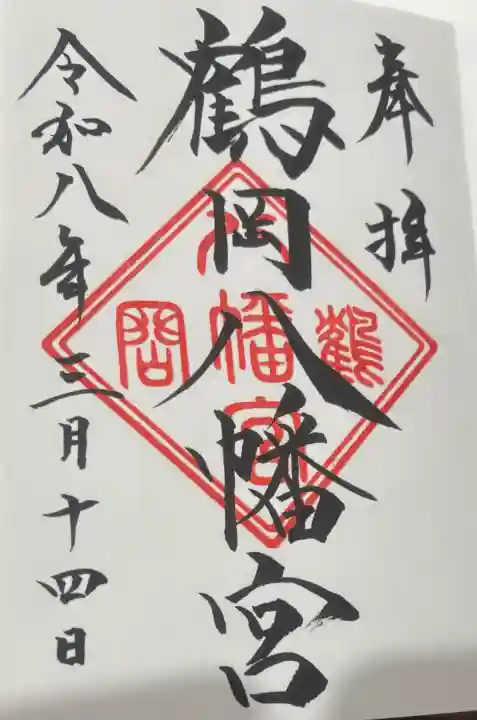 奉拝
鶴岡八幡宮
鶴
八幡宮
岡
令和八年三月十四日